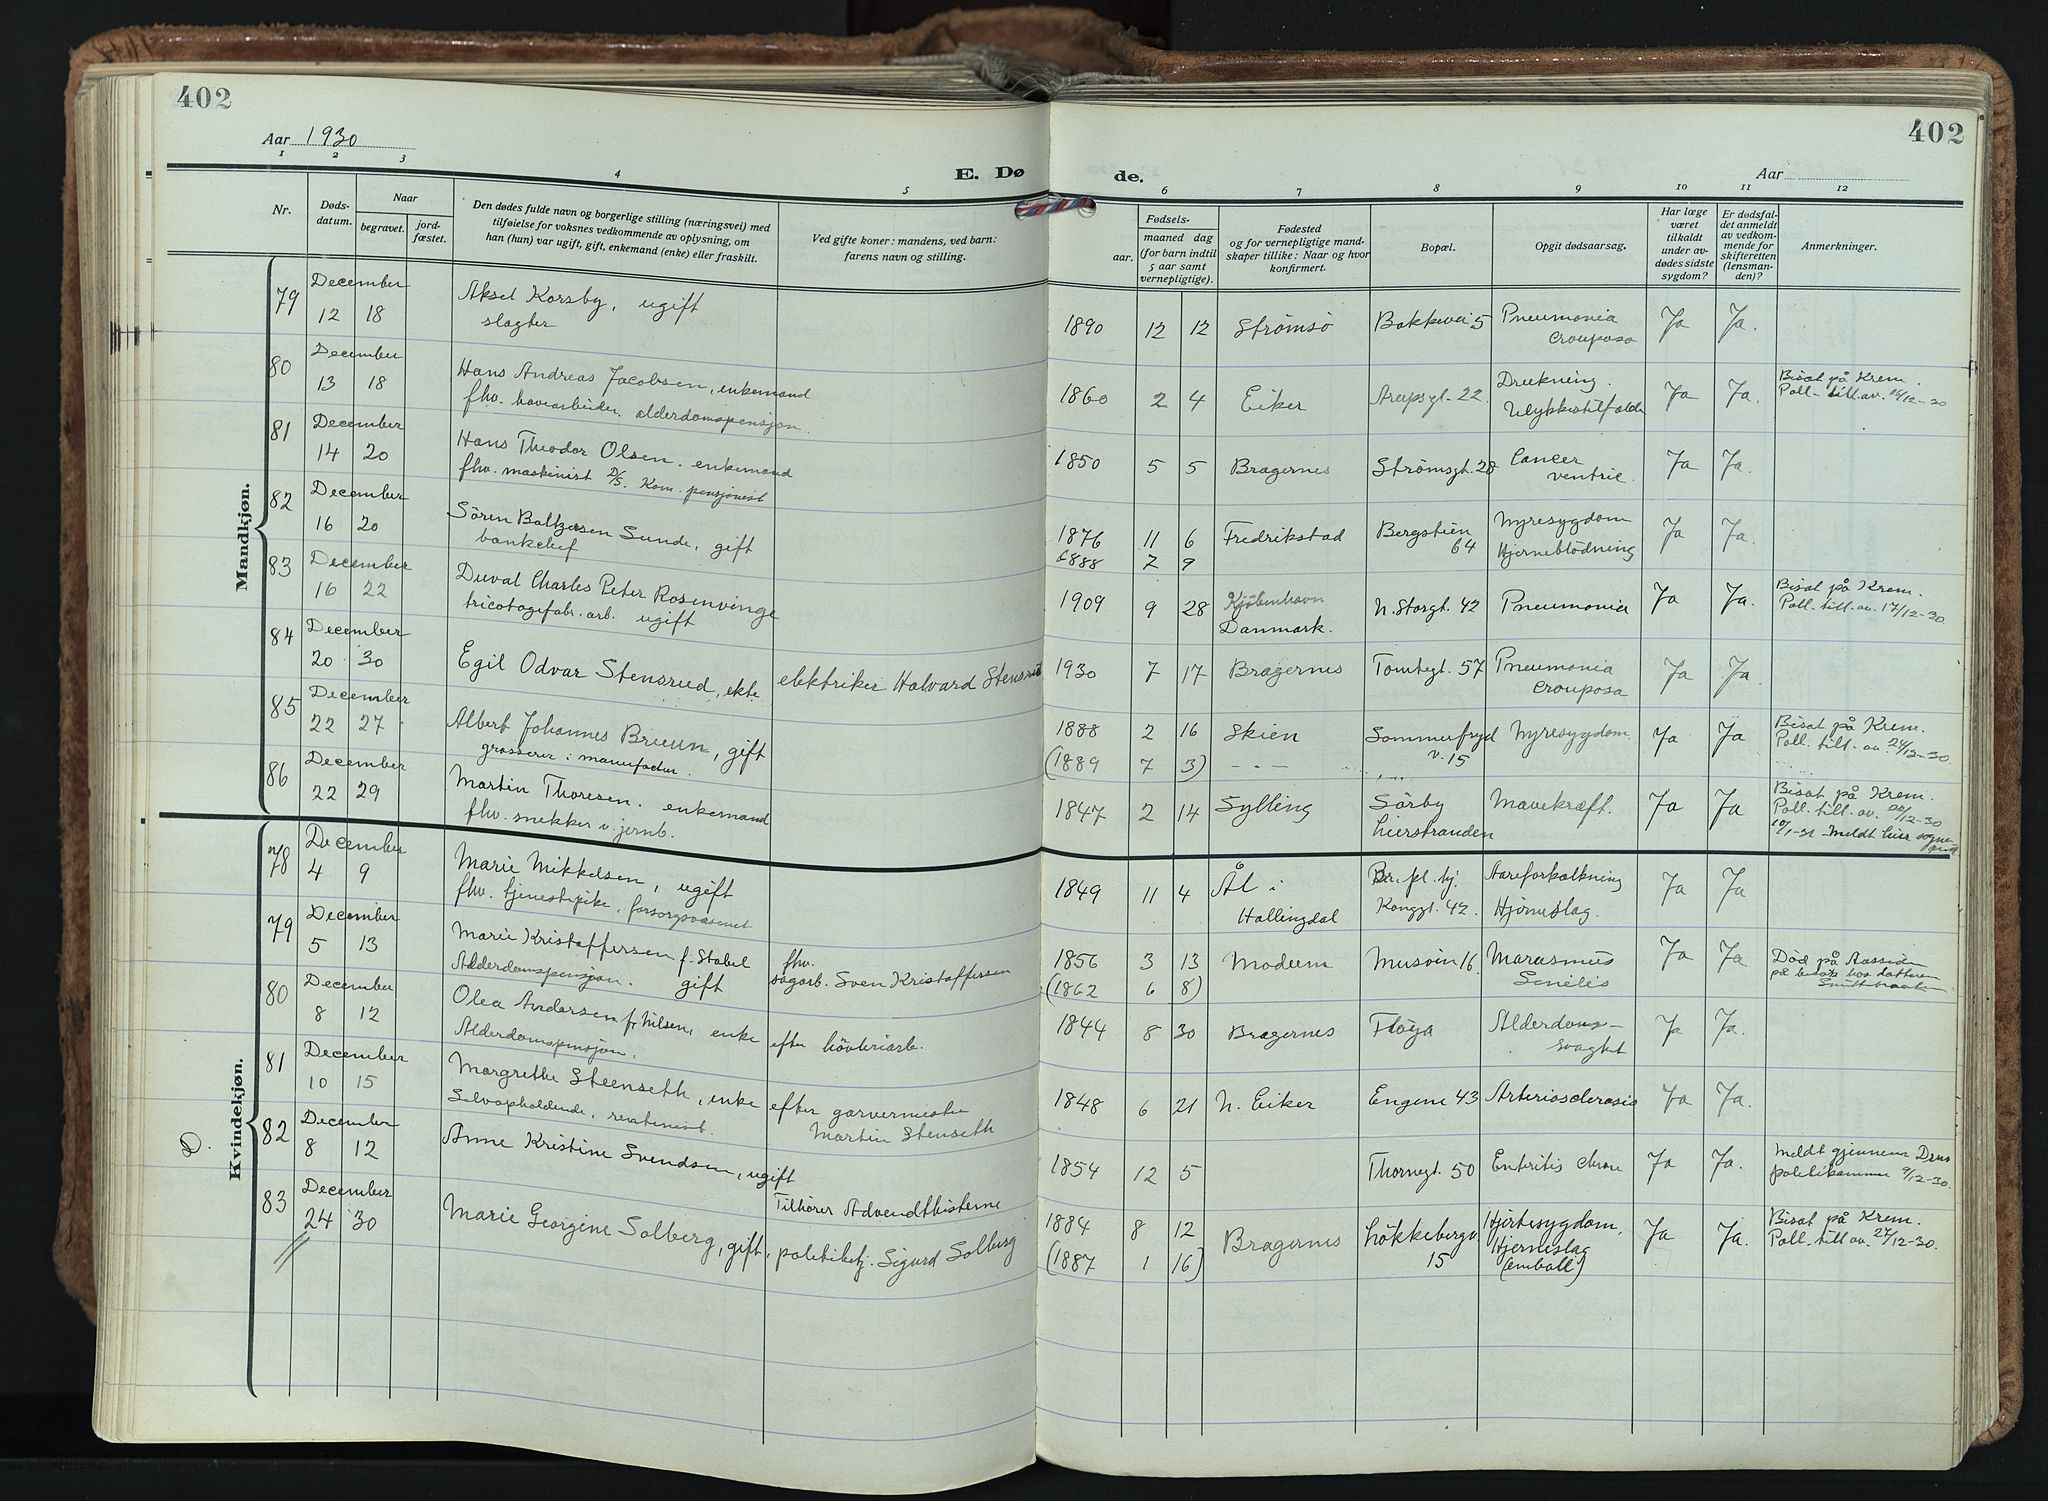 402
402
Aar 1930
Aar
E. Dø
de.
1 2 3 4 5 6 7 8 9 10 11 12
Nr.
Døds-
datum.
Naar
begravet.
jord-
fæstet.
Den dødes fulde navn og borgerlige stilling (næringsvei) med
tilføielse for voksnes vedkommende av oplysning, om
han (hun) var ugift, gift, enkemand (enke) eller fraskilt.
Ved gifte koner: mandens, ved barn:
farens navn og stilling.
Fødsels-
aar.
maaned dag
(for barn indtil
5 aar samt
vernepligtige).
Fødested
og for vernepligtige mand-
skaper tillike: Naar og hvor
konfirmert.
Bopæl.
Opgit dødsaarsag.
Har læge
været
tilkaldt
under av-
dødes sidste
sygdom?
Er dødsfal-
det anmeldt
av vedkom-
mende for
skifteretten
(lensman-
den)?
Anmerkninger.
Mandkjøn.
79 December 12 18 Aksel Korsby, ugift
slagter
1890 12 12 Strømsø Bakkevei 5 Pneumonia
crouposa Ja Ja.
80 December 13 18 Hans Andreas Jacobsen, enkemand
fhv. havearbeider. alderdomspensjon.
1860 2 4 Eiker Arupsgt. 22. Drukning.
Ulykkestilfælde Ja Ja. Bisat på Krem.
Poll. till. av. 16/12-30
81 December 14 20 Hans Theodor Olsen. enkemand
fhv. maskinist D/S. Kom. pensjonist
1850 5 5 Bragernes Strömsgt. 28 Cancer
ventric. Ja Ja.
82 December 16 20 Sören Baltzersen Sunde, gift
bankchef
1876 11 6 Fredrikstad Bergstien
64 Nyresygdom
Hjerneblödning Ja Ja.
1888 7 9
83 December 16 22 Duval Charles Peter Rosenvinge
tricotagefabr. arb. ugift
1909 9 28 Kjöbenhavn
Danmark. N. Storgt. 42 Pneumonia Ja Ja. Bisat på Krem.
Poll. till. av. 17/12-30.
84 December 20 30 Egil Odvar Stensrud, ekte elektriker Halvard Stensrud
1930 7 17 Bragernes Tomtegt. 57 Pneumonia
crouposa Ja Ja.
85 December 22 27 Albert Johannes Bruun, gift
grosserer i manufactur.
1888 2 16 Skien Sommerfryd
v. 15 Nyresygdom Ja Ja Bisat på Krem.
Poll. till. av. 24/12-30.
(1889 7 3) - - -
86 December 22 29 Martin Thoresen. enkemand
fhv. snekker v. jernb.
1847 2 14 Sylling Sörby
Lierstranden Mavekræft. Ja Ja Bisat på Krem.
Poll. till. av. /12-30
10/1-31 Meldt Lier sogne
Kvindekjøn.
78 December 4 9 Marie Mikkelsen, ugift
fhv. tjenestepike, forsorgsvæsenet
1849 11 4 Ål i
Hallingdal Br. pl. hj.
Konggt. 42. Aareforkalkning
Hjerneslag. Ja Ja
79 December 5 13 Marie Kristoffersen f. Stabel
Alderdomspensjon. gift fhv.
sagarb. Sven Kristoffersen
1856 3 13 Modum Musöin 16. Marasmus
Senilis Ja Ja Död på Aassiden
på besök hos datteren
(1862 6 8)
80 December 8 12 Olea Andersen f. Nilsen, enke efter hövleriarb.
Alderdomspensjon.
1844 8 30 Bragernes Flöya Alderdoms-
svaghet Ja Ja.
81 December 10 15 Margrethe Steenseth, enke efter garvermester
Martin Stenseth
Selvopholdende, rentenist.
1848 6 21 N. Eiker Engene 43 Arteriosclerosis Ja Ja.
D.
82 December 8 12 Anne Kristine Svendsen, ugift
Tilhörer Advendthisterne
1854 12 5 Thornegt. 50 Enteritis chron Ja Ja. Meldt gjennem Drms
politikammer 9/12-30.
83 December 24 30 Marie Georgine Solberg, gift, politibetj. Sigurd Solberg
1884 8 12 Bragernes Lökkebergv
15 Hjertesygdom,
Hjerneslag
(emboli) Ja Ja. Bisat på Krem.
Poll. till av. 27/12-30.
(1887 1 16)